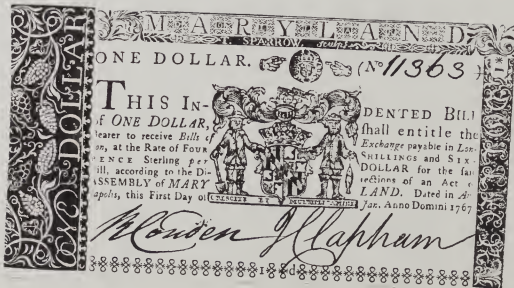 MARYLAND
T. SPARROW. Sculps
ONE DOLLAR
ONE DOLLAR. (No 11363)
THIS IN- DENTED Bill
of ONE DOLLAR, shall entitle the
Bearer to receive Bills of Exchange payable in Lon-
on, at the Rate of FOUR SHILLINGS and SIX-
PENCE Sterling per DOLLAR for the said
ill, according to the Di- rections of an Act o
ASSEMBLY of MARY LAND. Dated in An
apolis, this First Day of Jan. Anno Domini 1767
CRESCITE ET MULTIPLICAMINI
Clapham